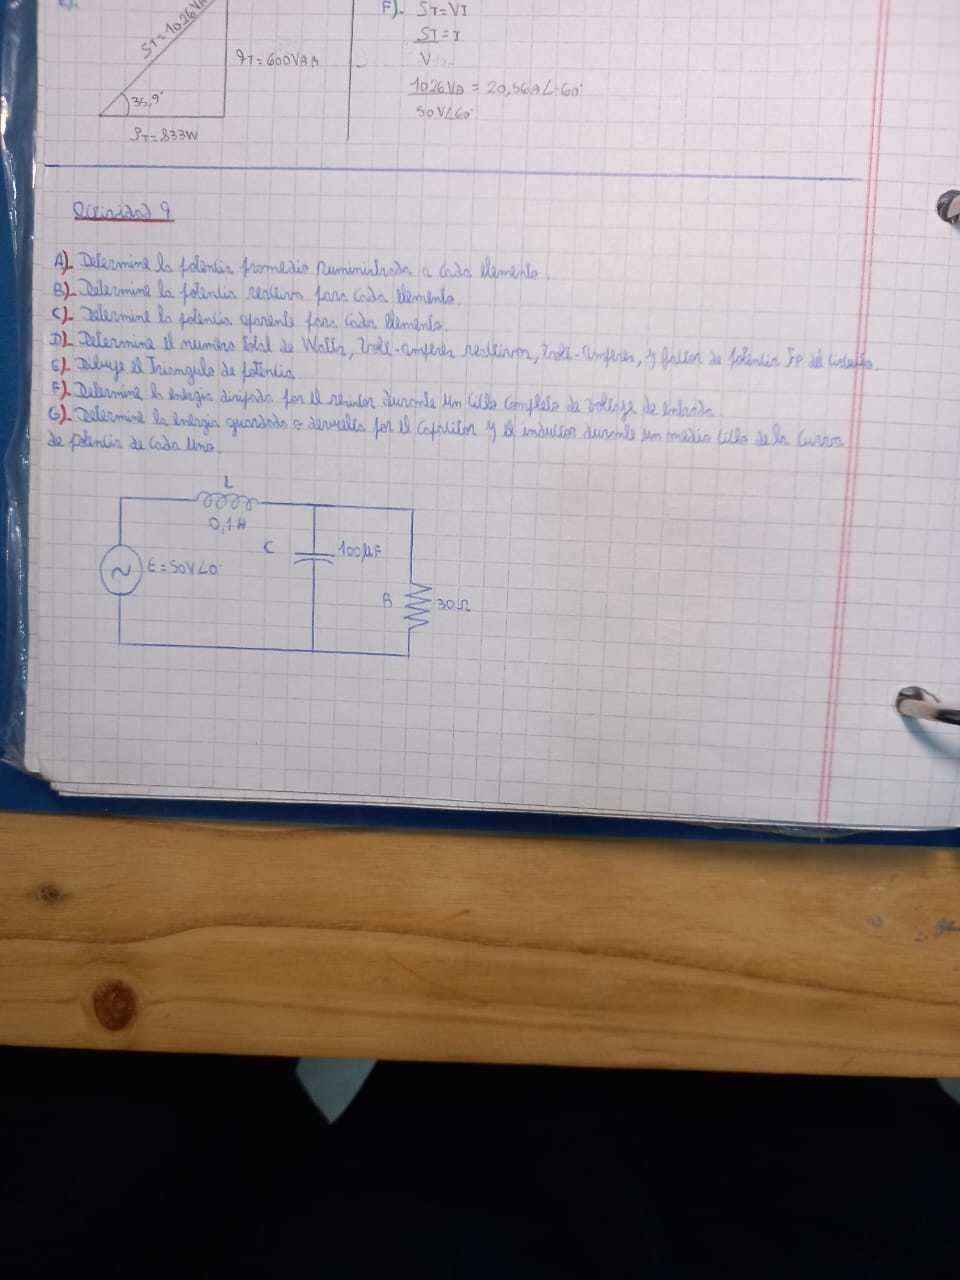 E).
ST=1026VA
qT=600VAR
35,9°
PT=833W
F). ST=VI
ST=I
V
1026VA = 20,56A∠-60°
50V∠60°
Actividad 9
A). Determine la potencia promedio suministrada a cada elemento.
B). Determine la potencia reactiva para cada elemento.
C). Determine la potencia aparente para cada elemento.
D). Determine el numero total de Watts, Volt-amperes reactivos, Volt-amperes, y factor de potencia Fp del circuito.
E). Dibuje el Triangulo de potencia
F). Determine la energia disipada por el resistor durante un ciclo completo de voltaje de entrada
G). Determine la energia guardada o devuelta por el capacitor y el inductor durante un medio ciclo de la curva
de potencia de cada uno.
L
0,1H
C 100µF
E=50V∠0°
R 30Ω